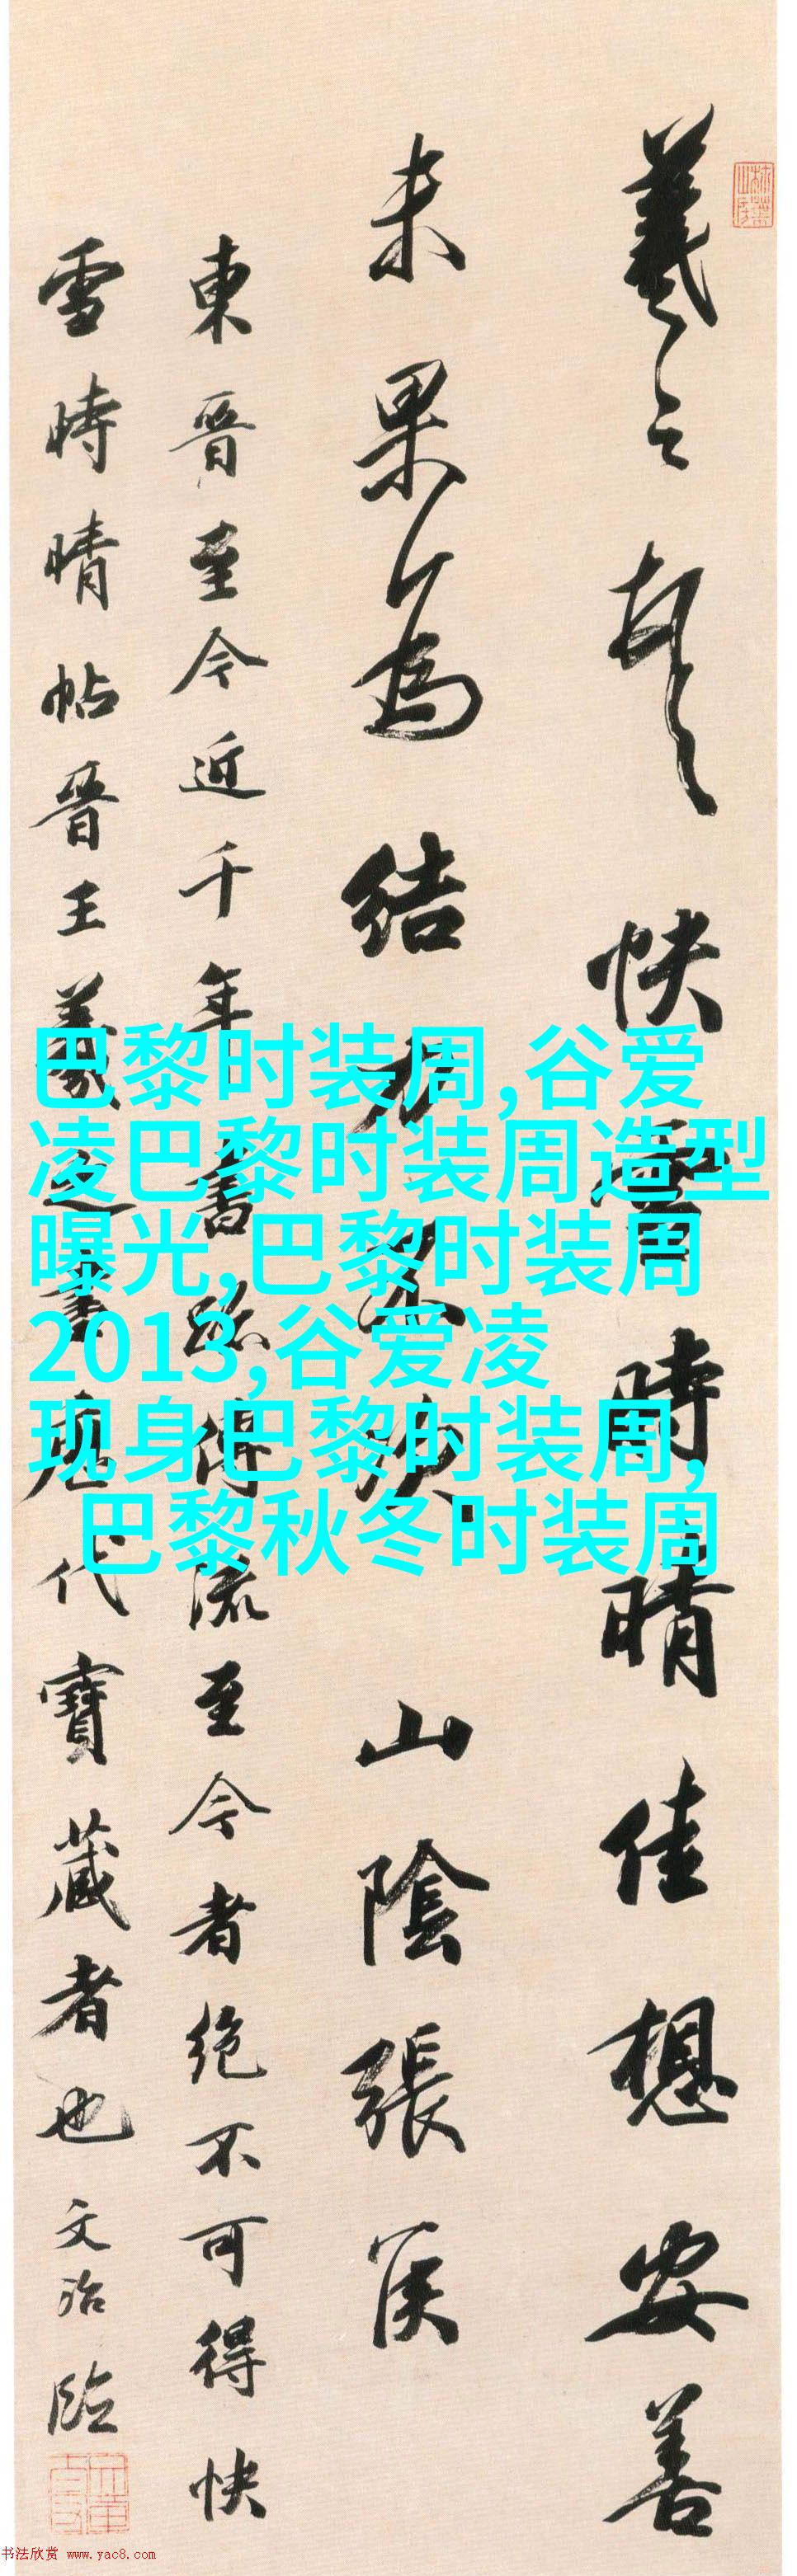 羲之頓首快雪時晴佳想安善
未果為結力不次山陰張侯
東晉至今近千年書跡傳流至今者絕不可得快
雪時晴帖晉王羲之書歷代寶藏者也文治臨
巴黎时装周,谷爱
凌巴黎时装周造型
曝光,巴黎时装周
2013,谷爱凌
现身巴黎时装周,
巴黎秋冬时装周
书法欣赏 www.yac8.com